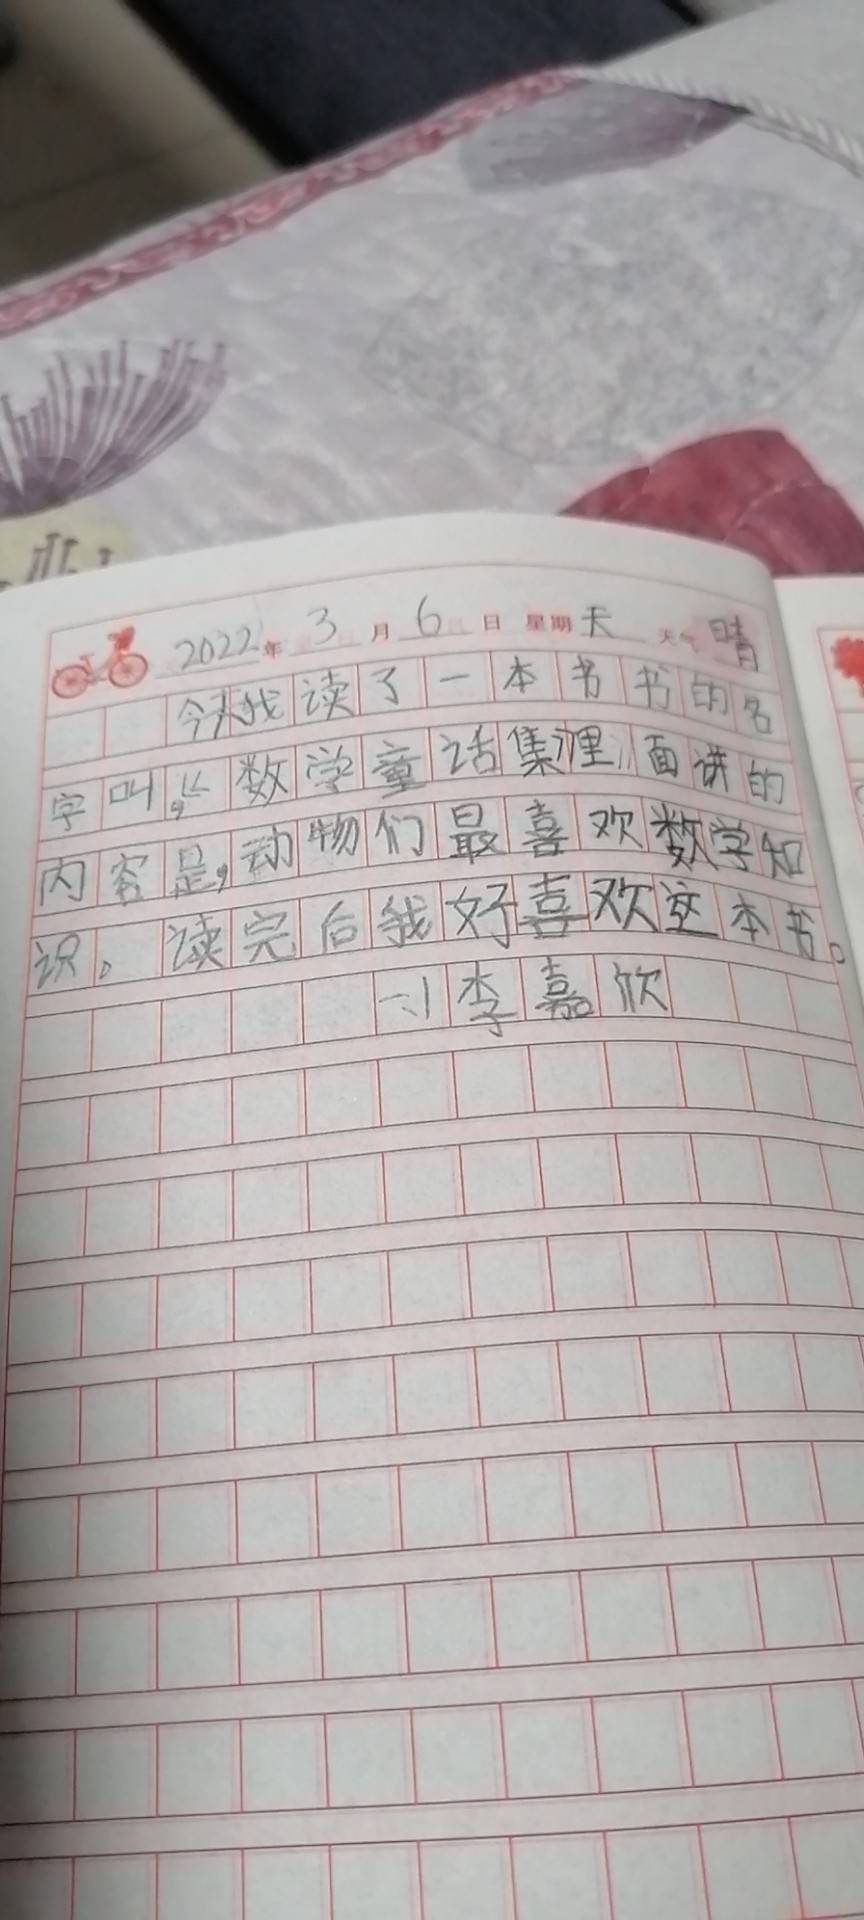 2022年 3月 6日 星期天 天气晴
今天我读了一本书书的名
字叫,《数学童话集》里面讲的
内容是,动物们最喜欢数学知
识。读完后我好喜欢这本书。
李嘉欣